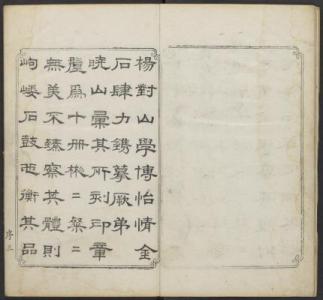 楊對山學博怡情金
石肆力鐫摹厥弟
曉山彙其所刻印章
釐爲十册彬二粲二
無美不臻察其體則
岣嶁石鼓也衡其品
序三